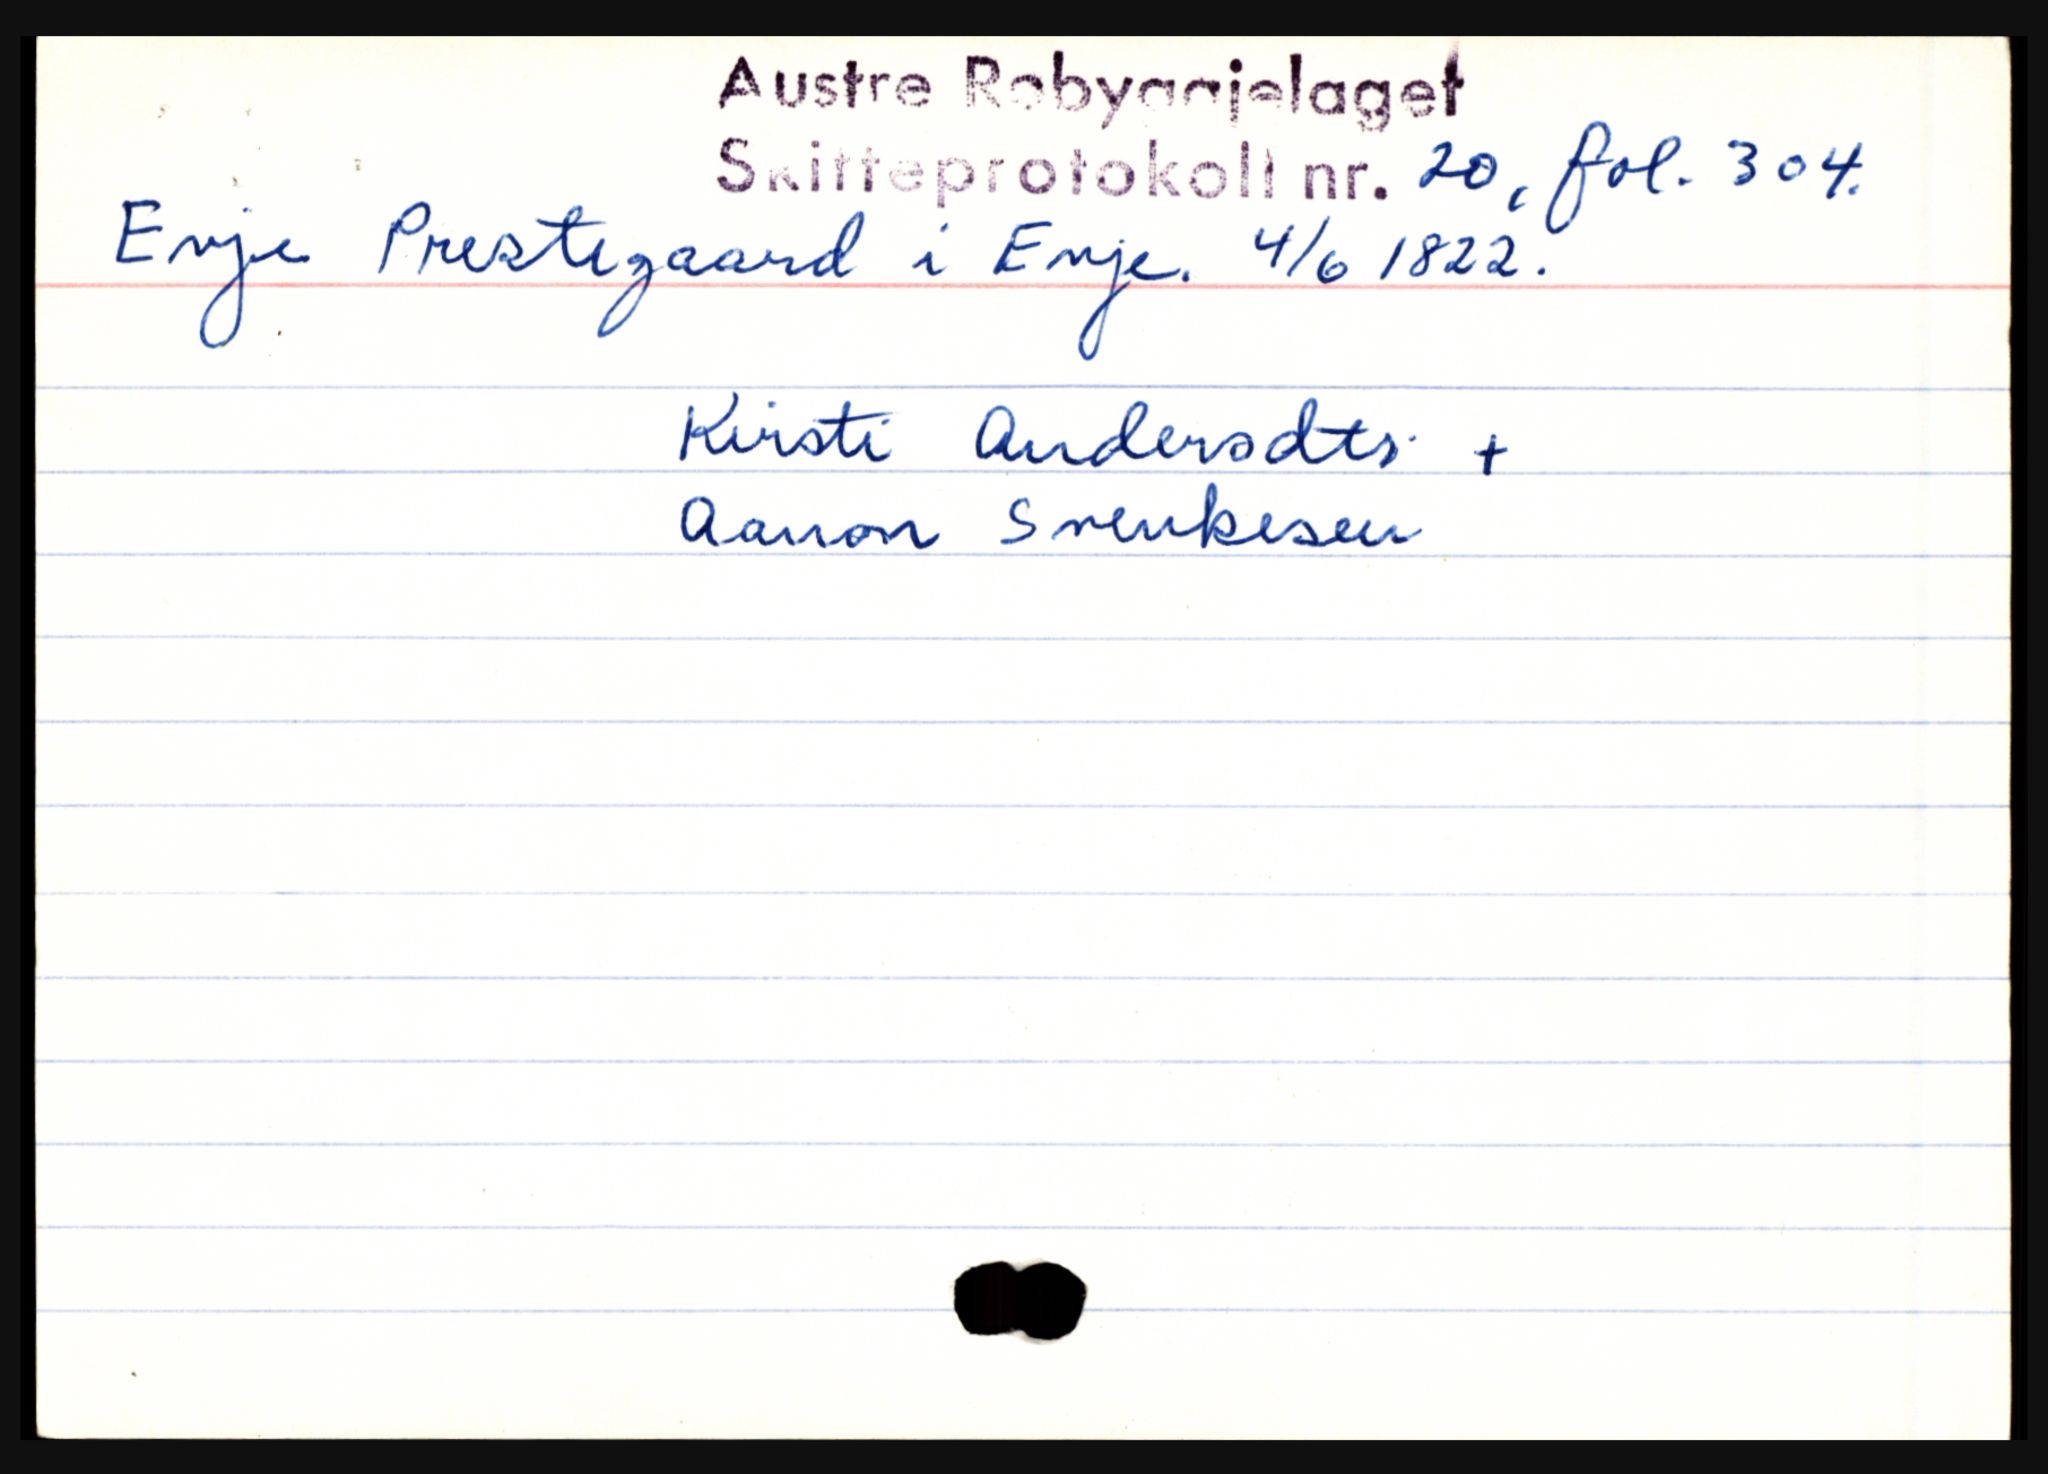 Austre Robyggjelaget
Skifteprotokoll nr. 20, fol. 304.
Evje Prestegaard i Evje. 4/6 1822.
Kirsti Andersdtr. +
Aanon Svenkesen